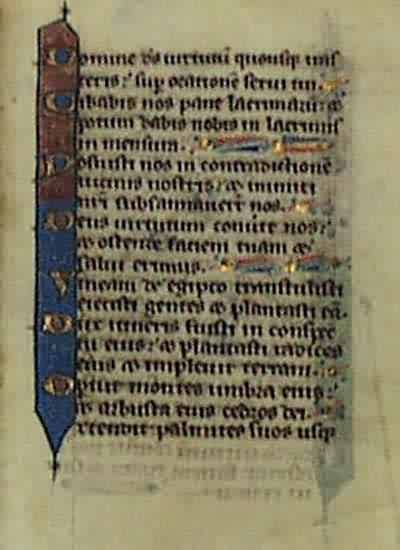 Domine ds uirtutū quousqꝫ iras
ceris: sup orationē serui tui.
Cibabis nos pane lacrimarū: et
potum dabis nobis in lacrimis
in mensura.
Posuisti nos in contradictionē
uicinis nostris: et inimici
nr̄i subsannauerūt nos.
Deus uirtutum conuerte nos:
et ostende faciem tuam et
salui erimus.
Vineam de egipto transtulisti
eiecisti gentes et plantasti eā.
Dux itineris fuisti in conspec
tu eius: et plantasti radices
eius et impleuit terram.
Operuit montes umbra eius:
et arbusta eius cedros dei.
Extendit palmites suos usqꝫ